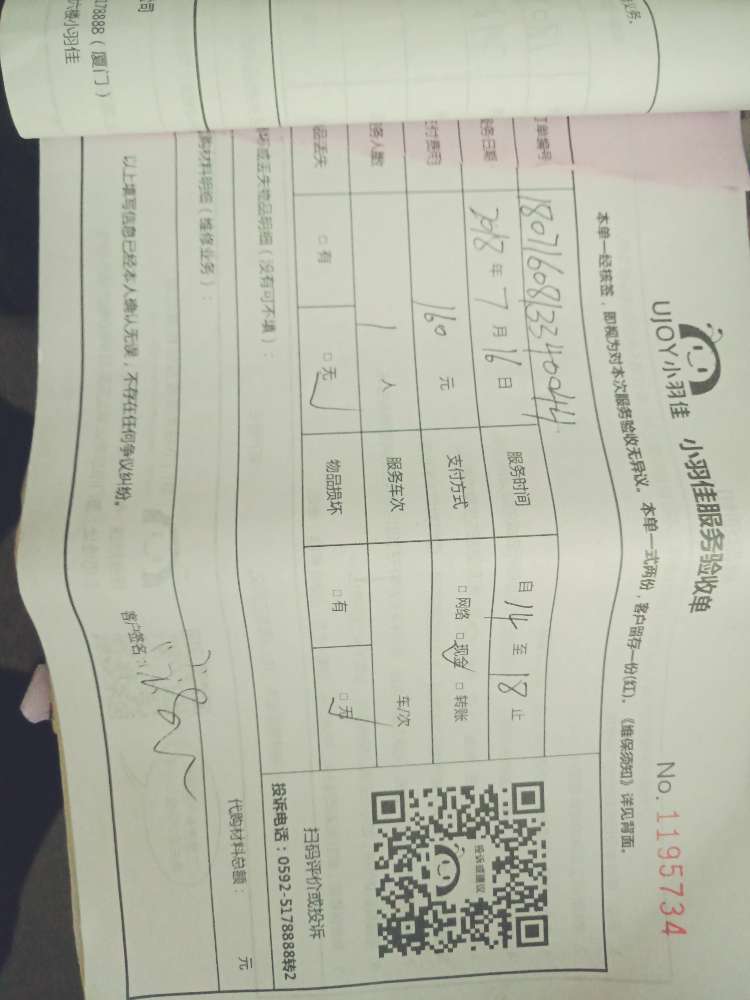 UJOY小羽佳 小羽佳服务验收单
No. 1195734
本单一经核签，即视为对本次服务验收无异议。本单一式两份，客户留存一份(红)。《维保须知》详见背面。
订单编号 180716081334004
服务日期 2018年7月16日 服务时间 自14至18止
支付费用 160元 支付方式 □网络 □现金 □转账
务人数 1人 服务车次 车/次
品丢失 □有 □无 物品损坏 □有 □无
坏或丢失物品明细（没有可不填）：
购材料明细（维修业务）：
代购材料总额： 元
以上填写信息已经本人确认无误，不存在任何争议纠纷。
客户签名：
投诉或建议
扫码评价或投诉
投诉电话：0592-5178888转2
务。
司
178888（厦门）
六楼小羽佳